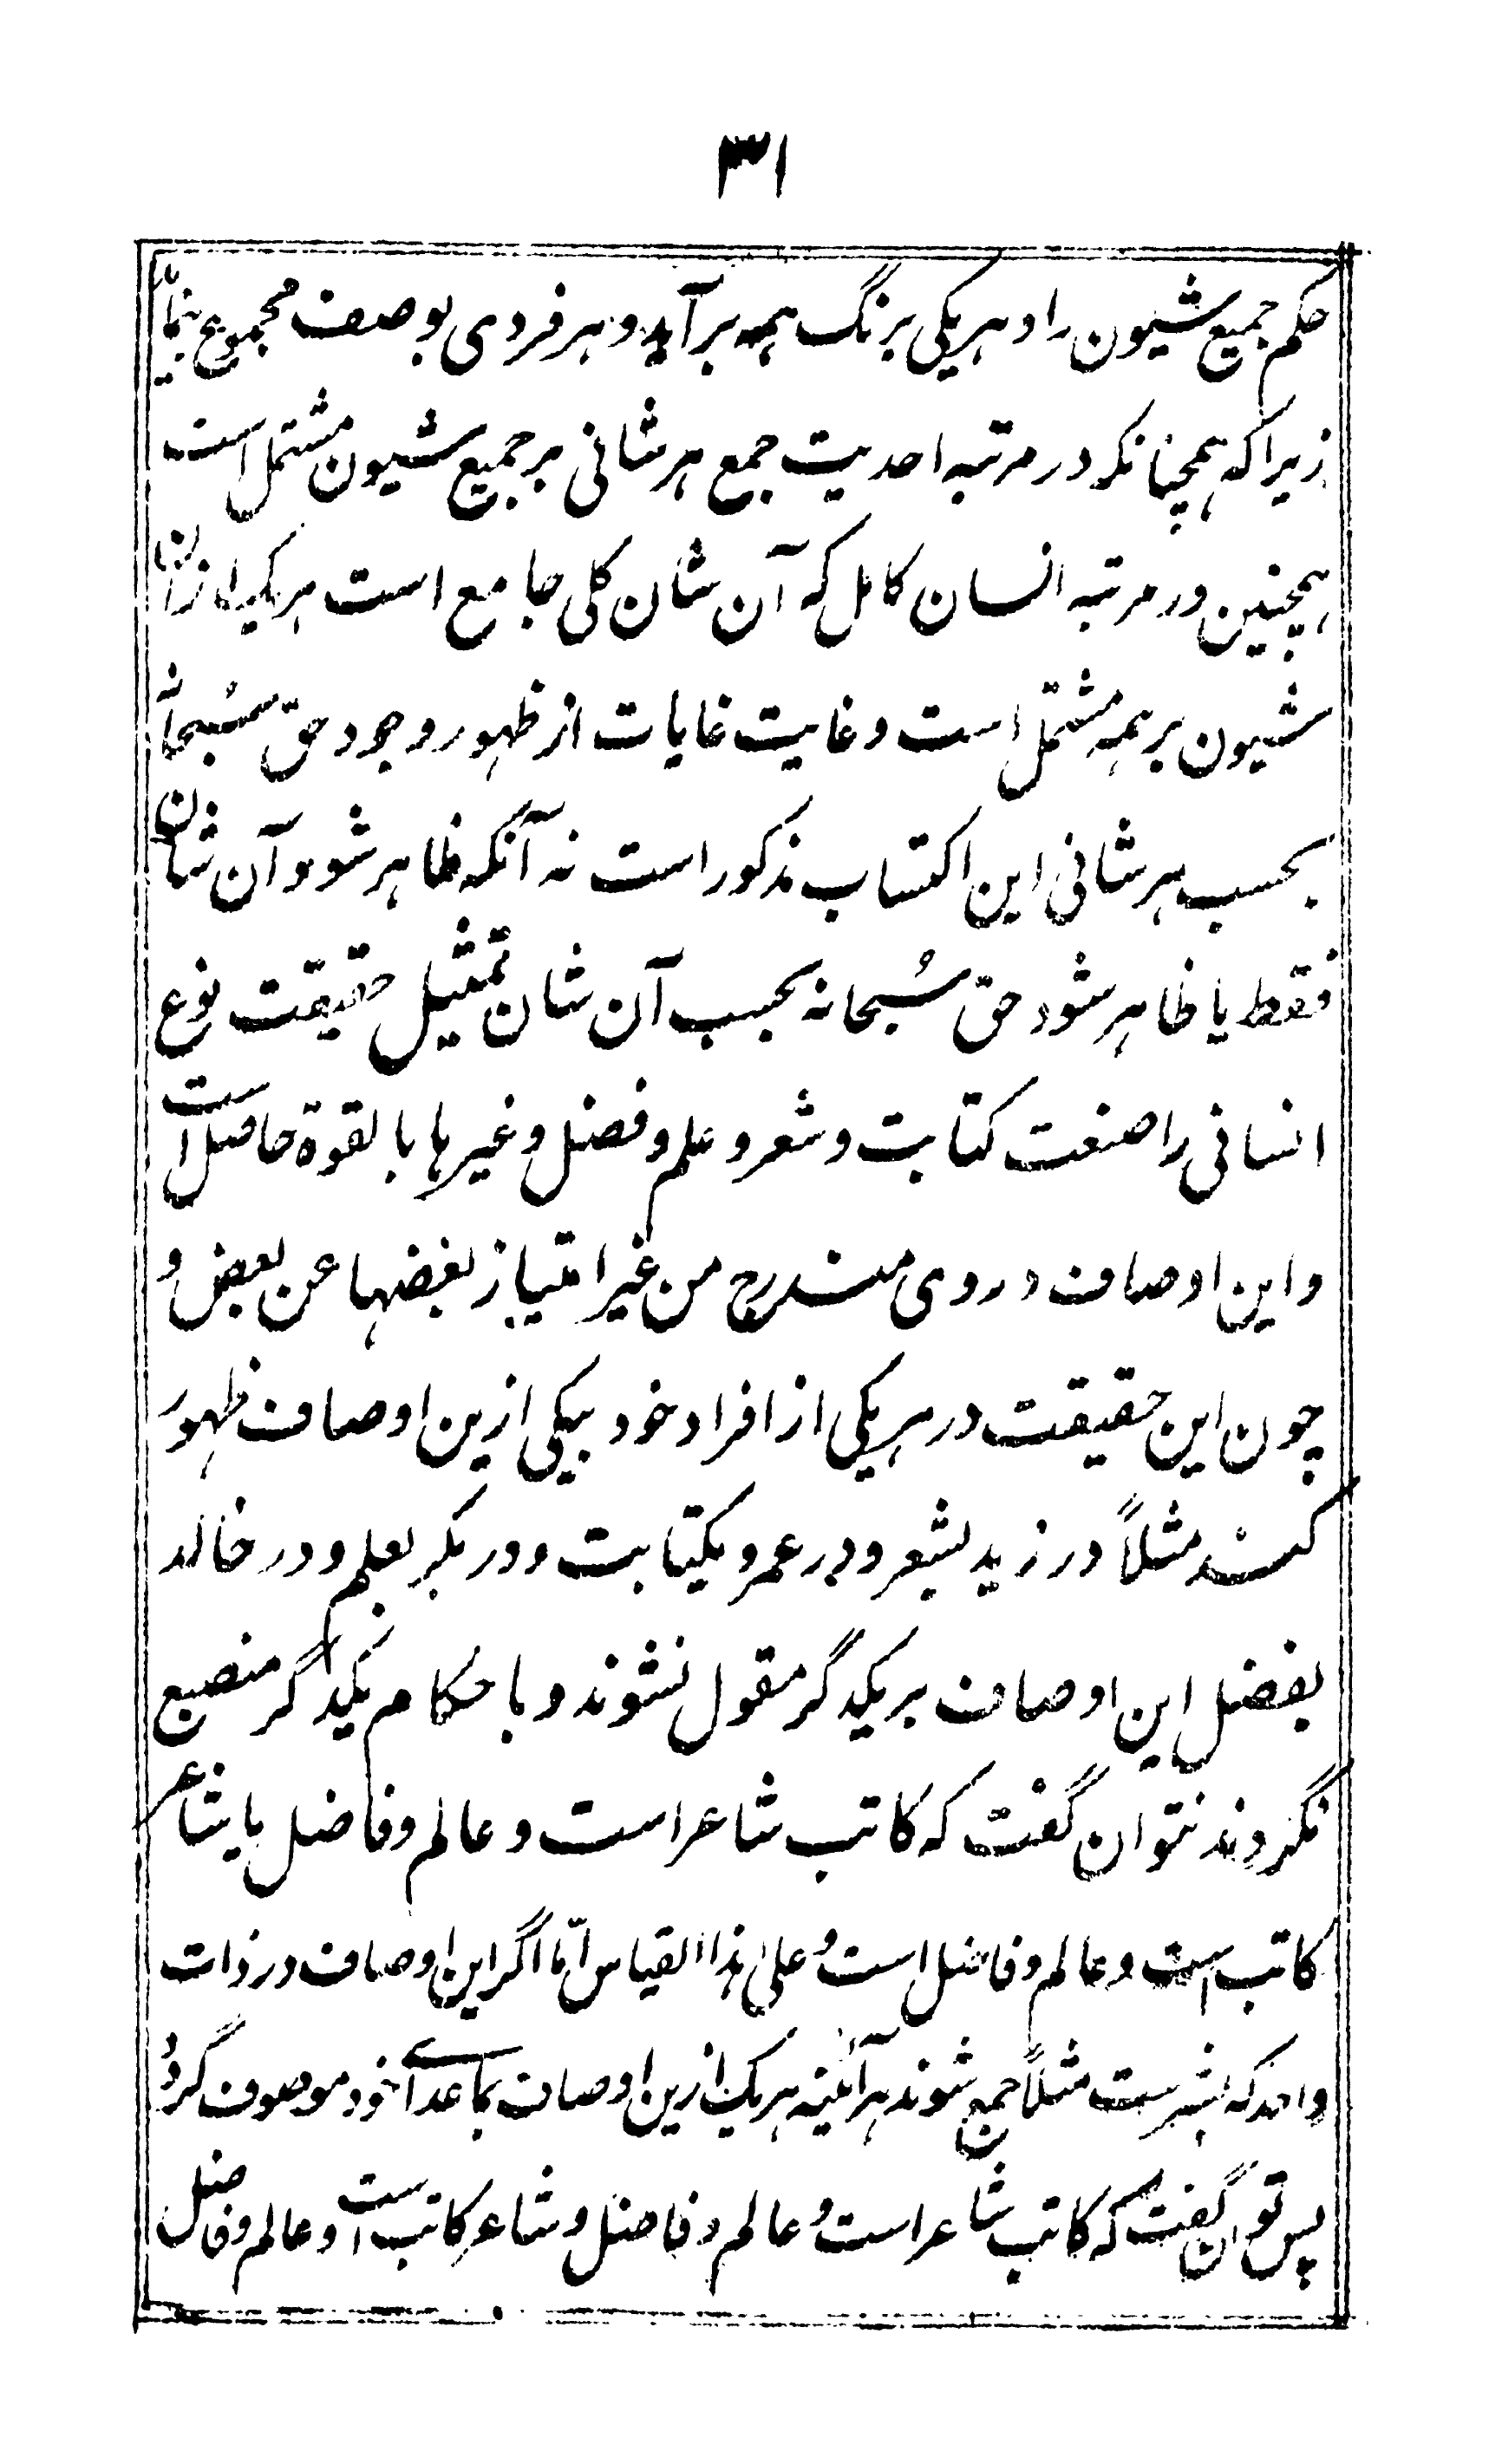 ۳۱
حکم جمیع شیون را و هر یکی برنگ همه برآید و هر فردی بوصف مجموع بنماید
زیرا که همچنانکه در مرتبه احدیت جمع هر شانی بر جمیع شیون مشتمل است
همچنین در مرتبه انسان کامل که آن شان کلی جامع است هریک را ازان
شیون بر همه مشتمل است و غایت غایات از ظهور وجود حق سُبحانه
بحسب هر شانی این اکتساب مذکور است نه آنکه ظاهر شود آن شان
فقط یا ظاهر شود حق سُبحانه بحسب آن شان تمثیل حقیقت نوع
انسانی را صنعت کتابت و شعر و علم و فضل و غیرها بالقوة حاصل است
و این اوصاف در وی مندرج من غیر امتیاز بعضها عن بعض و
چون این حقیقت در هر یکی از افراد خود بیکی ازین اوصاف ظهور
کند مثلاً در زید بشعر و در عمرو بکتابت و در بکر بعلم و در خالد
بفضل این اوصاف بر یکدگر مقول نشوند و باحکام یکدگر منصبع
نگردند نتوان گفت که کاتب شاعر است و عالم و فاضل یا شاعر
کاتب است و عالم و فاضل است و علی هذا القیاس امّا اگر این اوصاف در ذات
واحد که بشر ست مثلاً جمع شوند هر آئینه هر یک ازین اوصاف بما عدای خود موصوف گردد
پس توان گفت که کاتب شاعر است و عالم و فاضل و شاعر کاتب است و عالم و فاضل